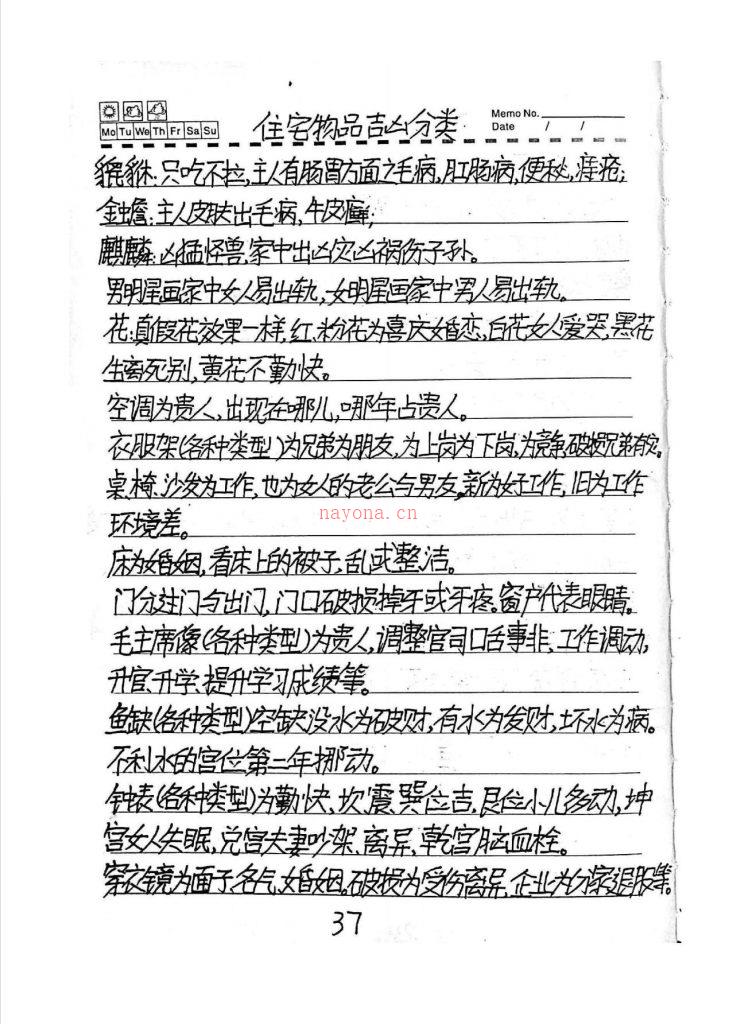 Memo No.
Mo Tu We Th Fr Sa Su
住宅物品吉凶分类
Date / /
貔貅:只吃不拉,主人有肠胃方面之毛病,肛肠病,便秘,痔疮;
金蟾:主人皮肤出毛病,牛皮癣;
麒麟:凶猛怪兽,家中出凶灾凶祸伤子孙。
男明星画家中女人易出轨,女明星画家中男人易出轨。
花:真假花效果一样,红、粉花为喜庆婚恋,白花女人爱哭,黑花
生离死别,黄花不勤快。
空调为贵人,出现在哪儿,哪年占贵人。
衣服架(各种类型)为兄弟为朋友,为上岗为下岗,为竞争,破损兄弟有灾。
桌、椅、沙发为工作,也为女人的老公与男友。新为好工作,旧为工作
环境差。
nayona.cn
床为婚姻,看床上的被子,乱或整洁。
门分进门与出门,门口破损掉牙或牙疼。窗户代表眼睛。
毛主席像(各种类型)为贵人,调整官司口舌事非、工作调动,
升官、升学、提升学习成绩等。
鱼缺(各种类型)空缺没水为破财,有水为发财,坏水为病。
不利水的宫位,第二年挪动。
钟表(各种类型)为勤快、坎、震、巽位吉、艮位小儿多动,坤
宫女人失眠,兑宫夫妻吵架、离异、乾宫脑血栓。
穿衣镜为面子、名气、婚姻。破损为受伤离异、企业为分家退股等。
37